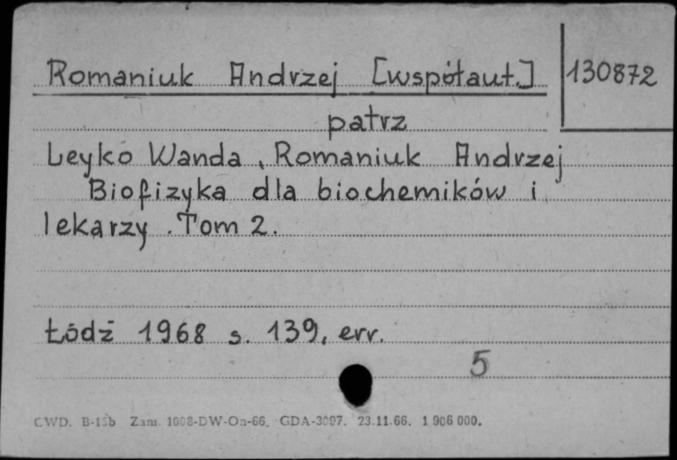 Romaniuk Andrzej [współaut.] 130872
patrz
Leyko Wanda, Romaniuk Andrzej
Biofizyka dla biochemików i
lekarzy. Tom 2.
Łódź 1968 s. 139, err.
5
CWD. B-15b Zam. 1008-DW-On-66. GDA-3097. 23.11.66. 1 906 000.